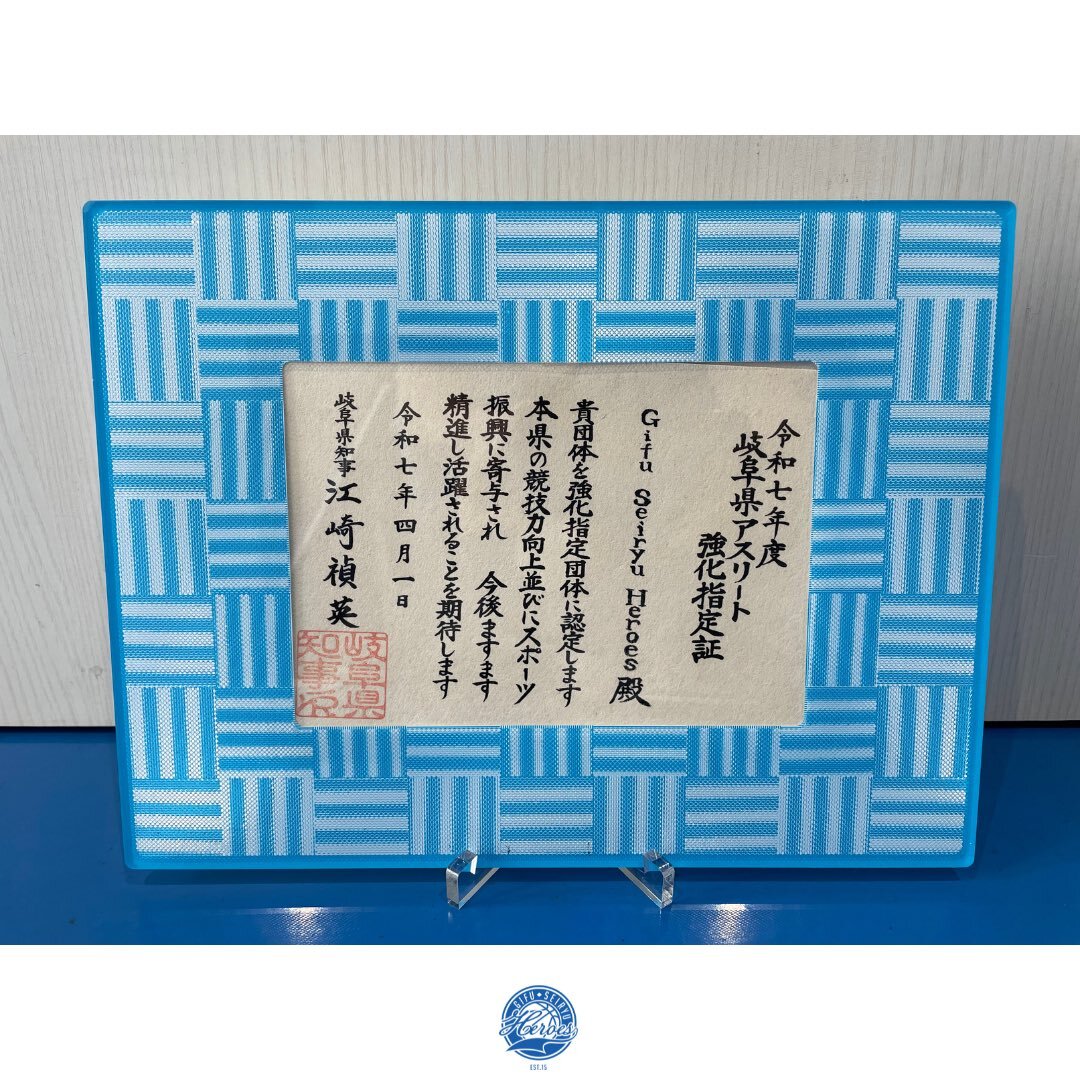 令和七年度
岐阜県アスリート
強化指定証
Gifu Seiryu Heroes殿
貴団体を強化指定団体に認定します
本県の競技力向上並びにスポーツ
振興に寄与され 今後ますます
精進し活躍されることを期待します
令和七年四月一日
岐阜県知事 江崎禎英
岐阜県
知事之印
GIFU SEIRYU
Heroes
EST.15